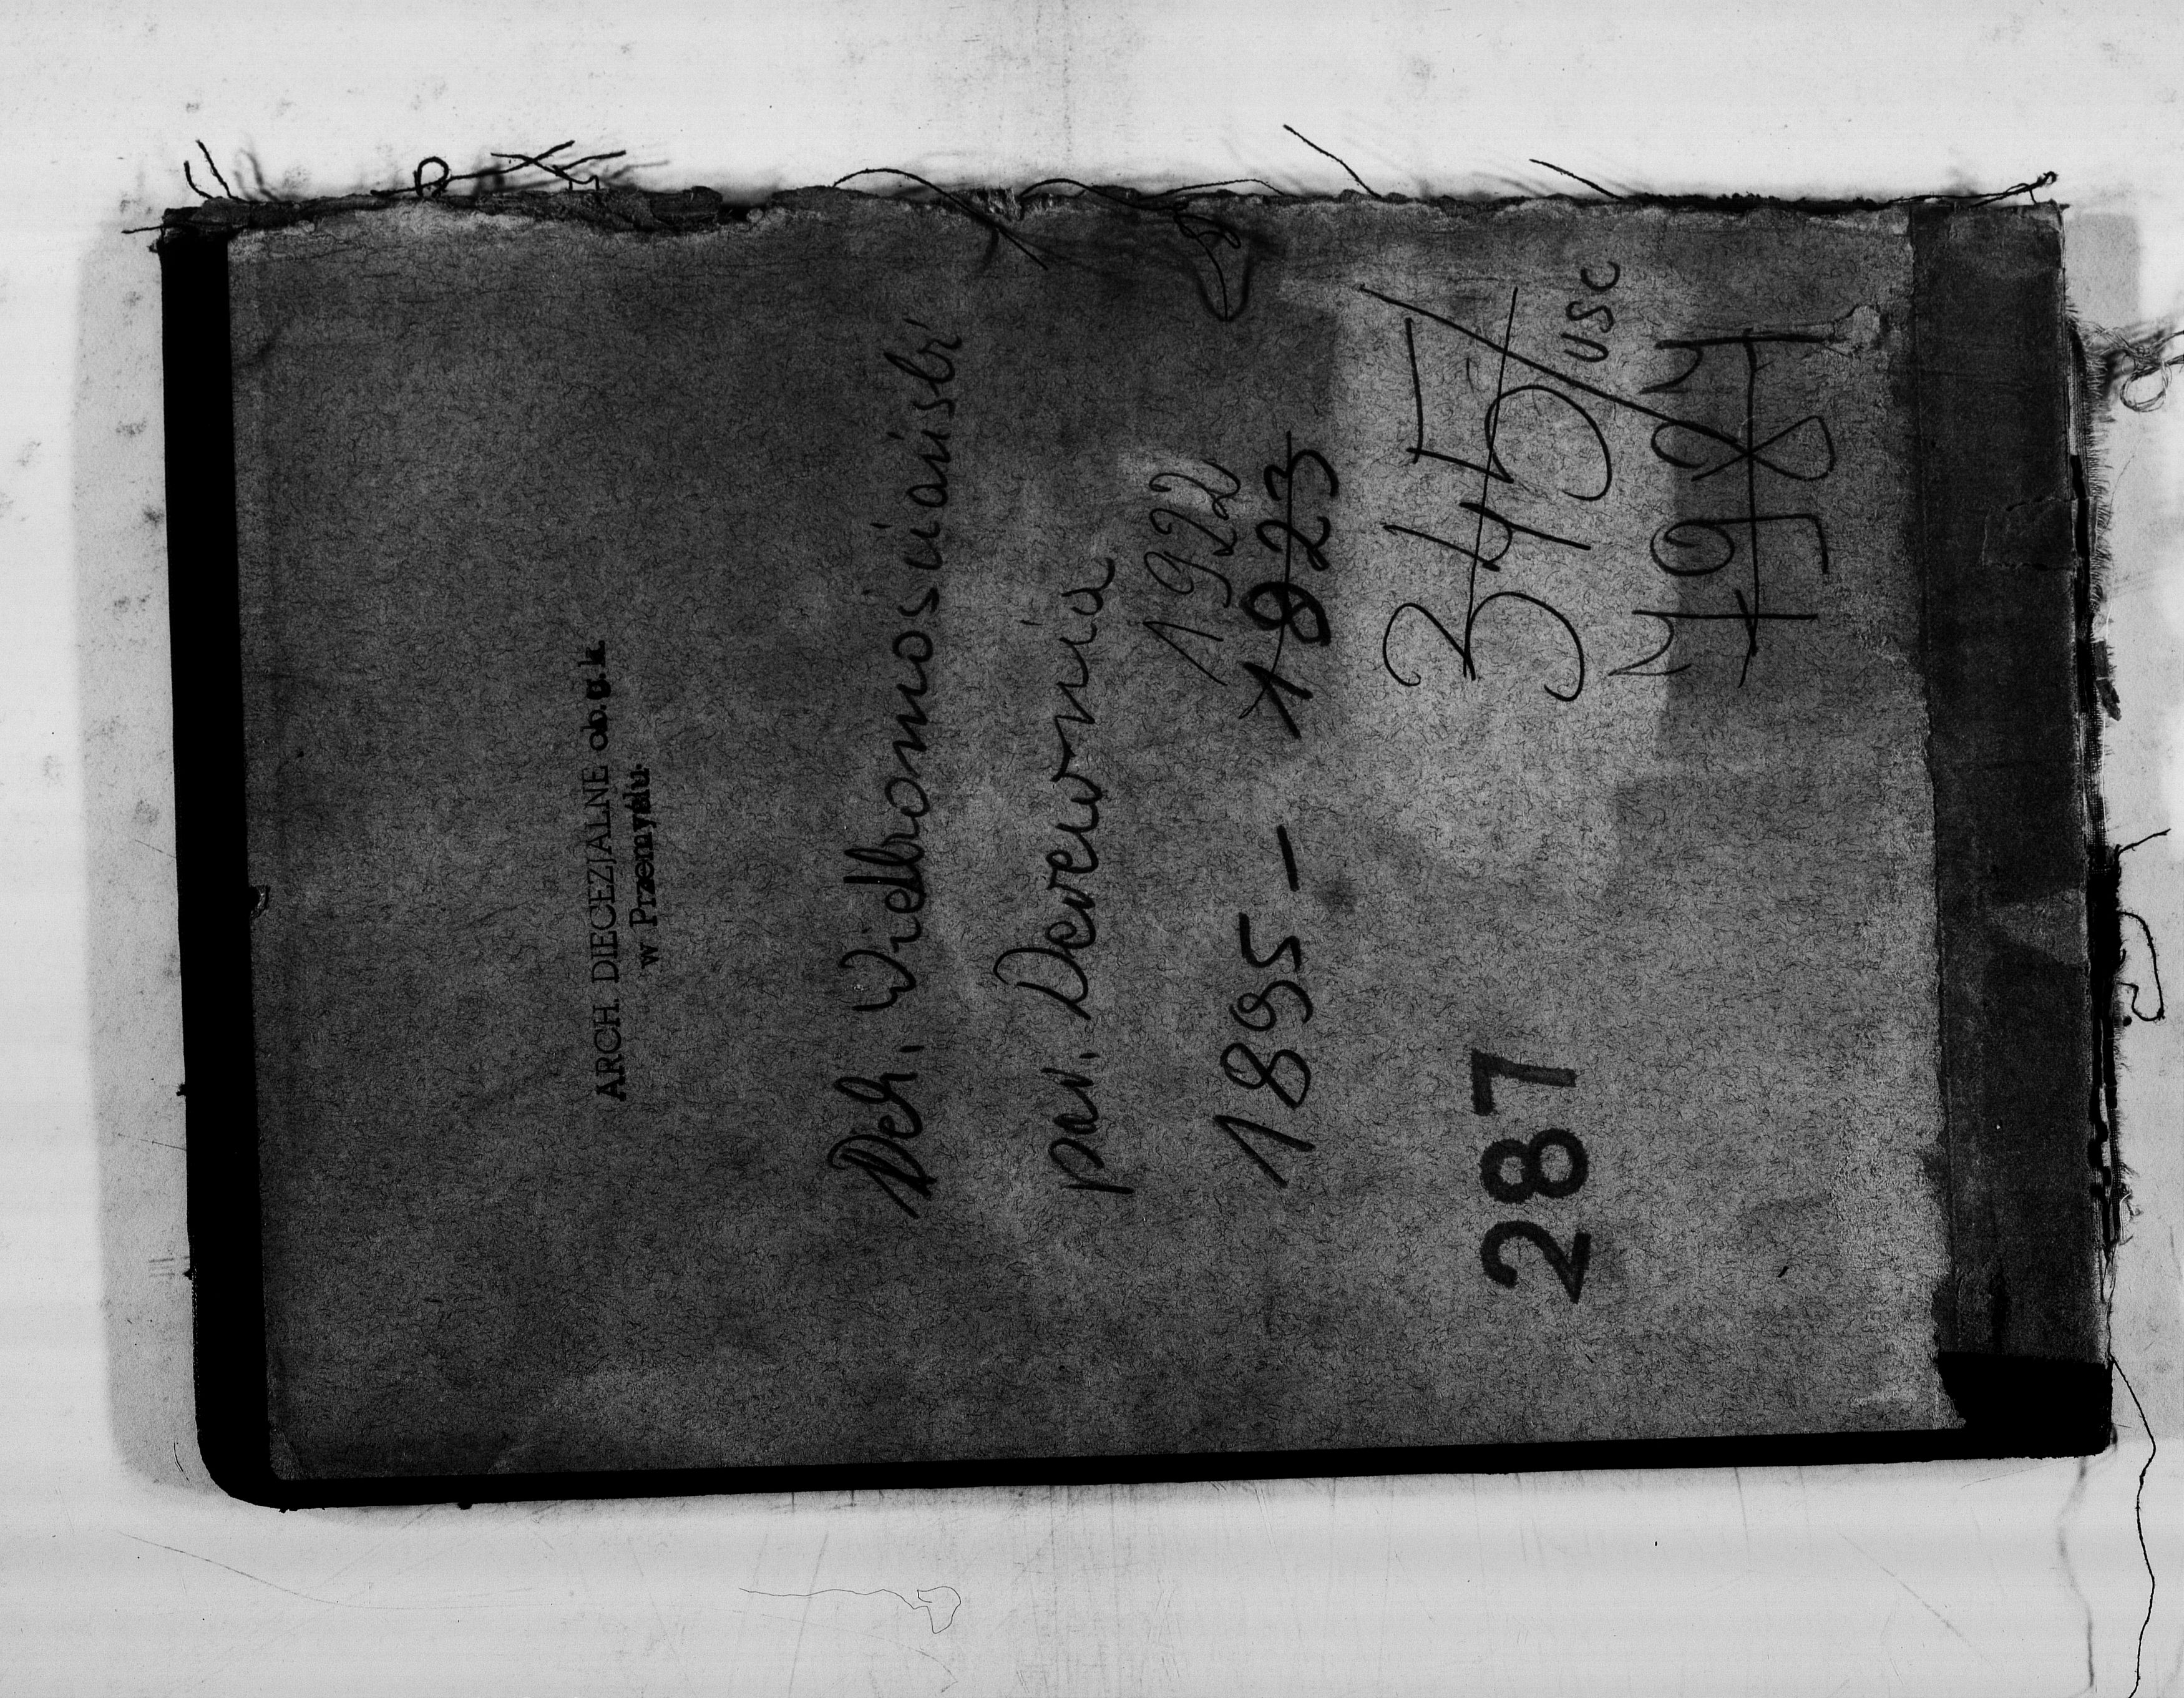 ARCH. DIECEZJALNE ob. g. k.
w Przemyślu.
Dek. Wielkomosciański
par. Derewnia
1922
1895 – 1923
287
345/usc
1921
1984